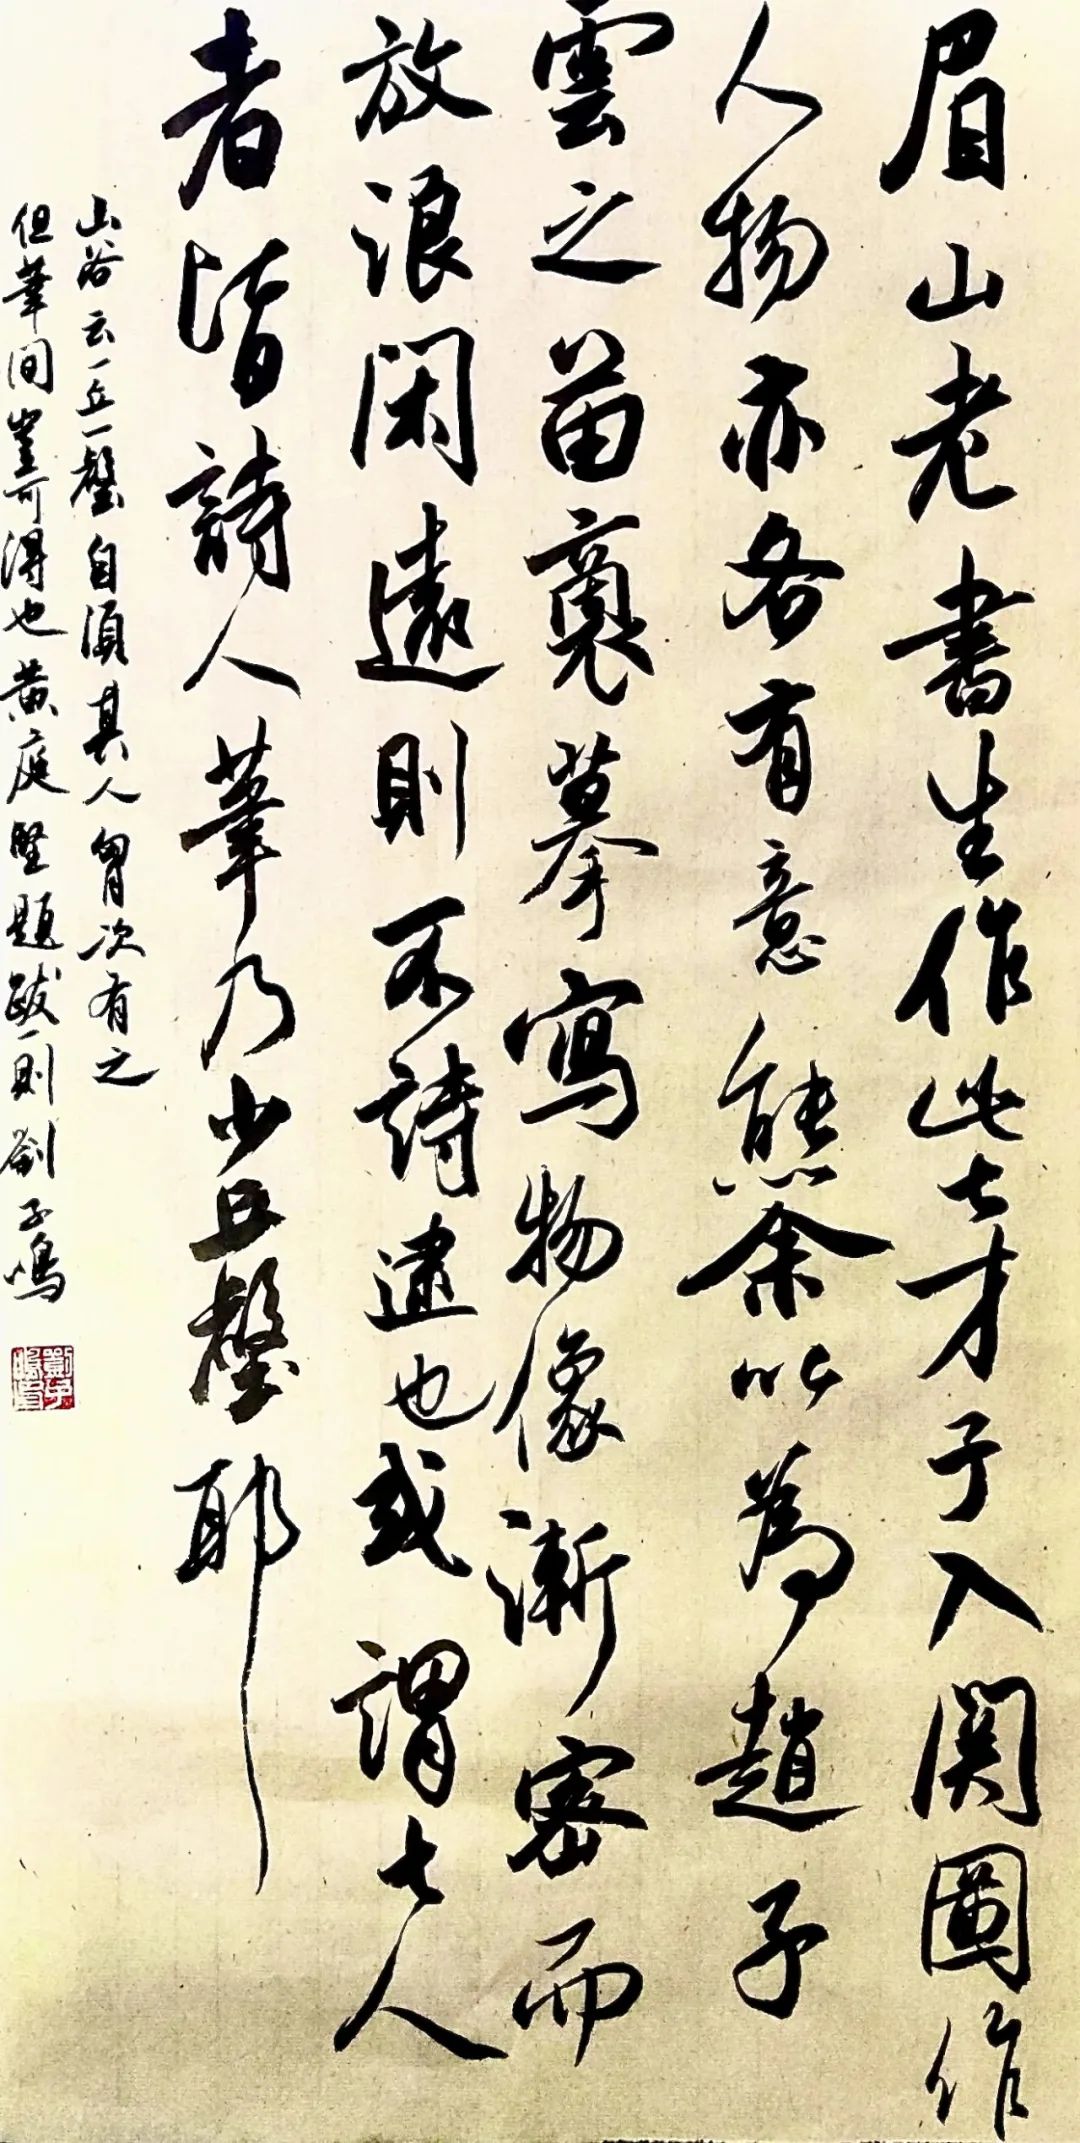 眉山老書生作此七才子入関圖作
人物亦各有意態余以為趙子
雲之苗裔摹寫物像漸密而
放浪閑遠則不詩逮也或謂七人
者皆詩人筆乃少丘壑耶
山谷云一丘一壑自須其人胸次有之
但筆间豈可得也黄庭堅題跋一則劉子鳴